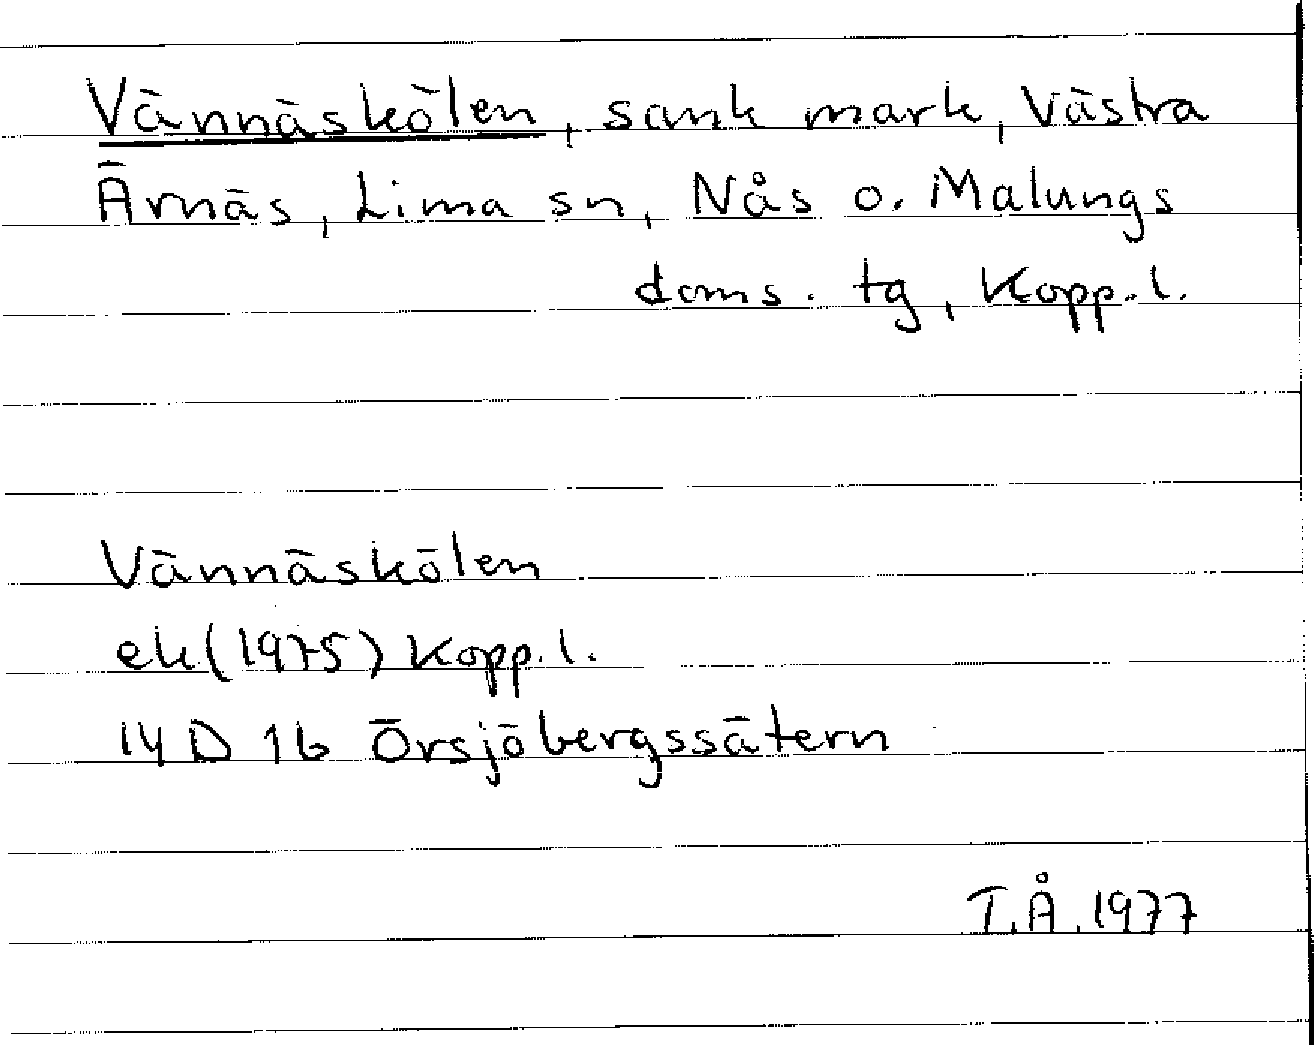 Vännäskölen, sank mark, Västra
Ärnäs, Lima sn, Nås o. Malungs
doms. tg, Kopp. l.
Vännäskölen
ek (1975) Kopp. l.
14 D 1b Örsjöbergssätern
T.Å. 1977